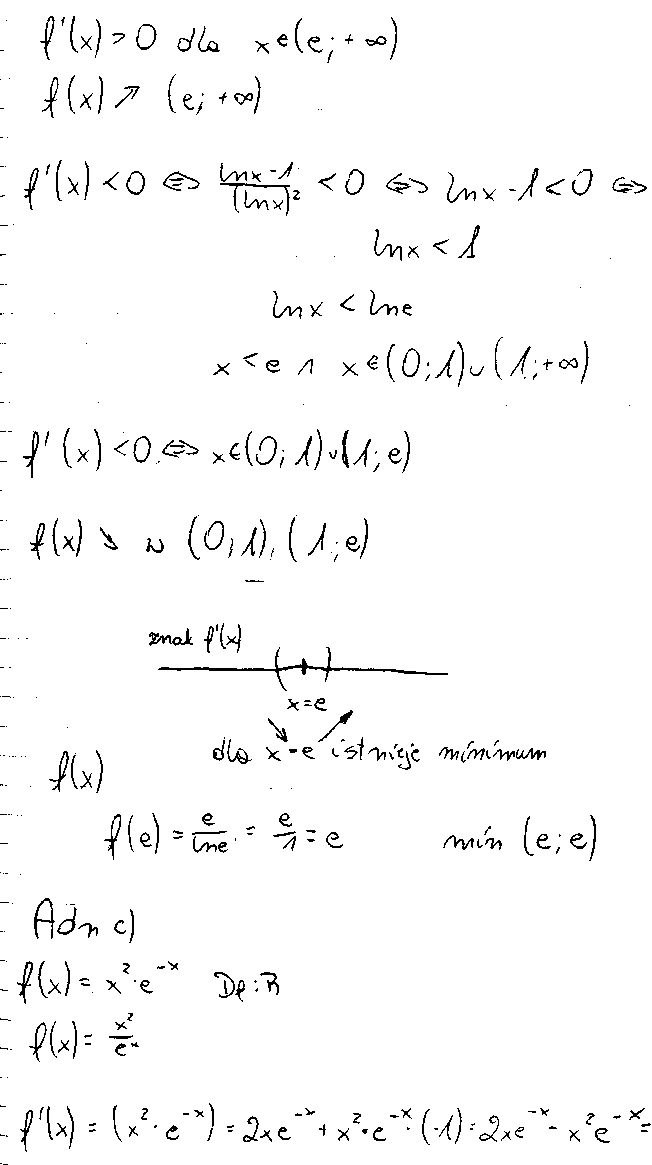 f'(x) > 0 dla x ∈ (e; +∞)
f(x) ↗ (e; +∞)
f'(x) < 0 ⇔ (lnx - 1)/(lnx)² < 0 ⇔ lnx - 1 < 0 ⇔
lnx < 1
lnx < lne
x < e ∧ x ∈ (0; 1) ∪ (1; +∞)
f'(x) < 0 ⇔ x ∈ (0; 1) ∪ (1; e)
f(x) ↘ w (0; 1), (1; e)
znak f'(x)
x = e
dla x = e istnieje minimum
f(x)
f(e) = e/lne = e/1 = e min (e; e)
Adn c)
f(x) = x² · e⁻ˣ Df: R
f(x) = x²/eˣ
f'(x) = (x² · e⁻ˣ) = 2xe⁻ˣ + x² · e⁻ˣ · (-1) = 2xe⁻ˣ - x²e⁻ˣ =